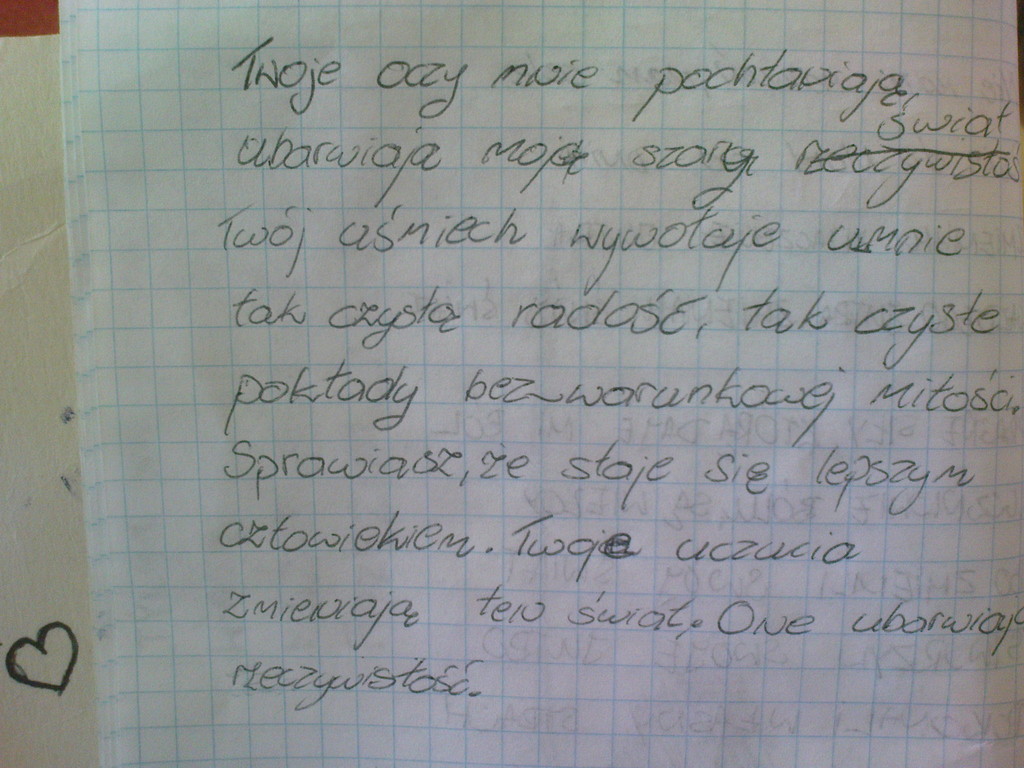 Twoje oczy mnie pochłaniają,
świat
ubarwiają moją szarą rzeczywistoś
Twój uśmiech wywołuje u mnie
tak czystą radość, tak czyste
pokłady bezwarunkowej miłości.
Sprawiasz, że staje się lepszym
człowiekiem. Twoje uczucia
zmieniają ten świat. One ubarwiają
rzeczywistość.